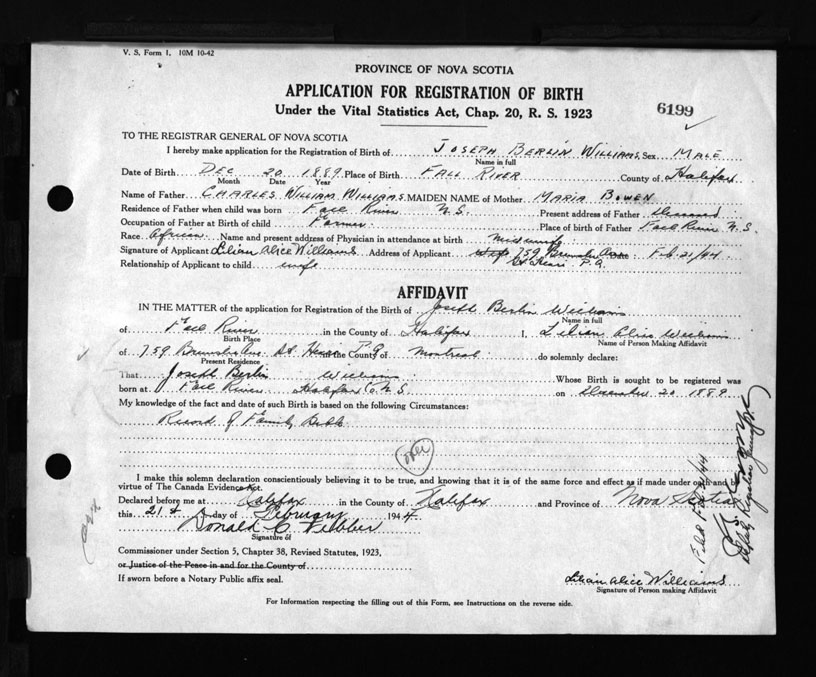 V. S. Form 1. 10M 10-42
PROVINCE OF NOVA SCOTIA
APPLICATION FOR REGISTRATION OF BIRTH
Under the Vital Statistics Act, Chap. 20, R. S. 1923
6199
TO THE REGISTRAR GENERAL OF NOVA SCOTIA
I hereby make application for the Registration of Birth of JOSEPH BERLIN WILLIAMS Sex MALE
Name in full
Date of Birth DEC 20 1889 Place of Birth FALL RIVER County of Halifax
Month Date Year
Name of Father CHARLES WILLIAM WILLIAMS MAIDEN NAME of Mother MARIA BOWEN
Residence of Father when child was born Fall River N.S. Present address of Father Deceased
Occupation of Father at Birth of child Farmer Place of birth of Father Fall River N.S.
Race African Name and present address of Physician in attendance at birth midwife
Signature of Applicant Lilian Alice Williams Address of Applicant 759 Feb. 21/44
Relationship of Applicant to child wife St. Henri P.Q.
AFFIDAVIT
IN THE MATTER of the application for Registration of the Birth of Joseph Berlin Williams
Name in full
of Fall River in the County of Halifax I, Lilian Alice Williams
Birth Place Name of Person Making Affidavit
of 759 St. Henri P.Q. of Montreal do solemnly declare:
Present Residence
That Joseph Berlin Williams Whose Birth is sought to be registered was
born at Fall River Halifax Co. N.S. on December 20 1889
My knowledge of the fact and date of such Birth is based on the following Circumstances:
Record of Family Bible
over
I make this solemn declaration conscientiously believing it to be true, and knowing that it is of the same force and effect as if made under oath and by
virtue of The Canada Evidence Act.
Declared before me at Halifax in the County of Halifax and Province of Nova Scotia
this 21st day of February 1944
Donald C. Webber
Signature of
Commissioner under Section 5, Chapter 38, Revised Statutes, 1923,
or Justice of the Peace in and for the County of
If sworn before a Notary Public affix seal.
Lilian Alice Williams
Signature of Person making Affidavit
For Information respecting the filling out of this Form, see Instructions on the reverse side.